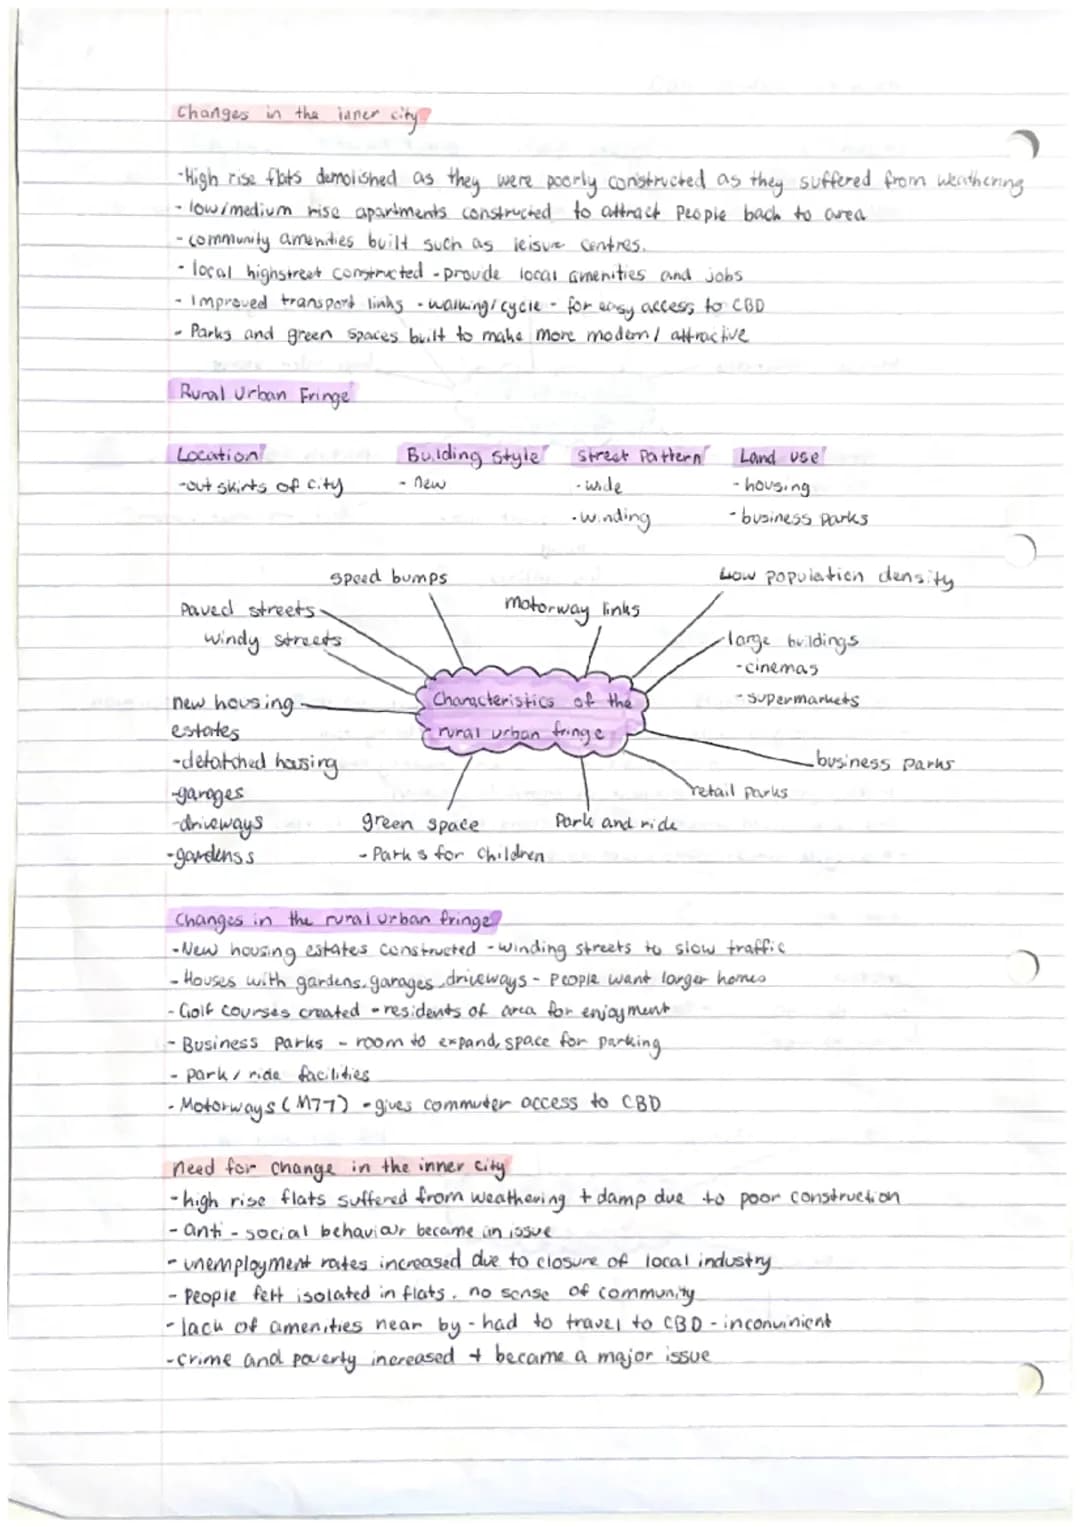 Changes in the inner city
-High rise flats demolished as they were poorly constructed as they suffered from weathering
- low/medium rise apartments constructed to attract people back to area
- community amenities built such as leisure centres.
- local highstreet constructed - provide local amenities and jobs
- Improved transport links - walking/cycle - for easy access to CBD
- Parks and green spaces built to make more modern/ attractive
Rural Urban Fringe
Location Building Style Street Pattern Land use
-out skirts of city - new - wide - housing
- winding - business parks
speed bumps
Low population density
Paved streets
motorway links
windy streets
large buildings
-cinemas
-supermarkets
new housing
estates
-detatched housing
-garages
-driveways
-gardenss
Characteristics of the
rural urban fringe
business parks
retail parks
green space
- Parks for children
Park and ride
Changes in the rural urban fringe
-New housing estates constructed - winding streets to slow traffic
- Houses with gardens, garages, driveways - People want larger homes
- Golf courses created - residents of area for enjoyment
- Business Parks - room to expand, space for parking
- park/ ride facilities
- Motorways (M77) - gives commuter access to CBD
Need for change in the inner city
-high rise flats suffered from weathering + damp due to poor construction
- anti - social behaviour became an issue
- unemployment rates increased due to closure of local industry
- People felt isolated in flats. no sense of community
- lack of amenities near by - had to travel to CBD - inconvinient
-crime and poverty increased + became a major issue